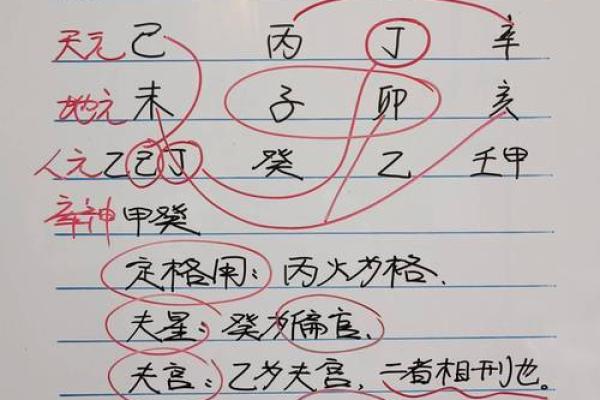 天元 己 丙 丁 辛
地元 未 子 卯 亥
人元 乙己丁 癸 乙 壬甲
甲癸
定格用：丙火为格.
夫星：癸为偏官.
夫宫：乙为夫宫，二者相刑也。